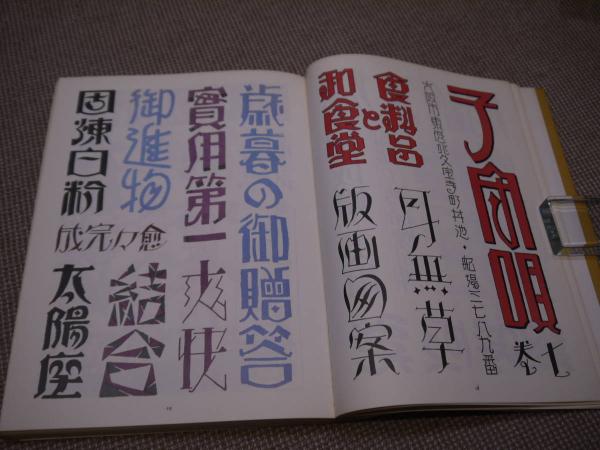 子守唄
大阪市東區北久宝寺町丼池・船場三七八九番
食料品
と
和食堂
耳無草
版画図案
歳暮の御贈答
實用第一
爽快
御進物
愈々完成
結合
固煉白粉
太陽座